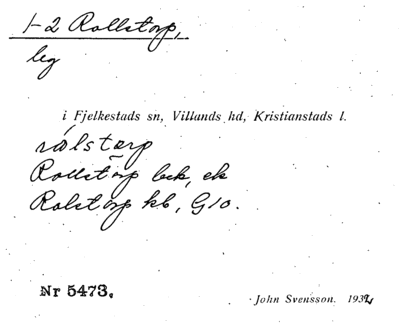 1-2 Rollstorp,
leg
i Fjelkestads sn, Villands hd, Kristianstads l.
rålstørp
Rollstorp beb, ek
Rolstorp kb, G10.
Nr 5473.
John Svensson. 1932